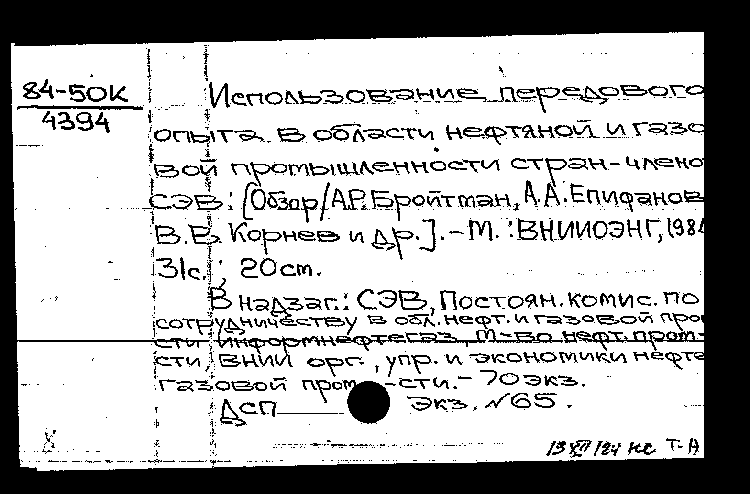 84-50К
4394
Использование передового
опыта в области нефтяной и газо
вой промышленности стран-члено
СЭВ: [Обзор/А.Р.Бройтман, А.А.Епифанов
В.В. Корнев и др.]. - М. : ВНИИОЭНГ, 1984
31с. ; 20 cm.
В надзаг.: СЭВ, Постоян. комис. по
сотрудничеству в обл. нефт. и газовой про
сти, Информнефтегаз, М-во нефт. пром-
сти, ВНИИ орг., упр. и экономики нефте
газовой пром-сти. - 70 экз.
ДСП экз. №65.
13 XII 84 Т-А